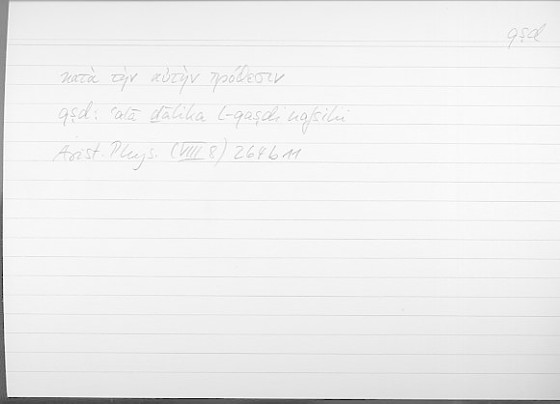 qṣd
κατὰ τὴν αὐτὴν πρόθεσιν
qṣd: ʿalā ḏālika l-qaṣdi nafsihi
Arist. Phys. (VIII 8) 264b11